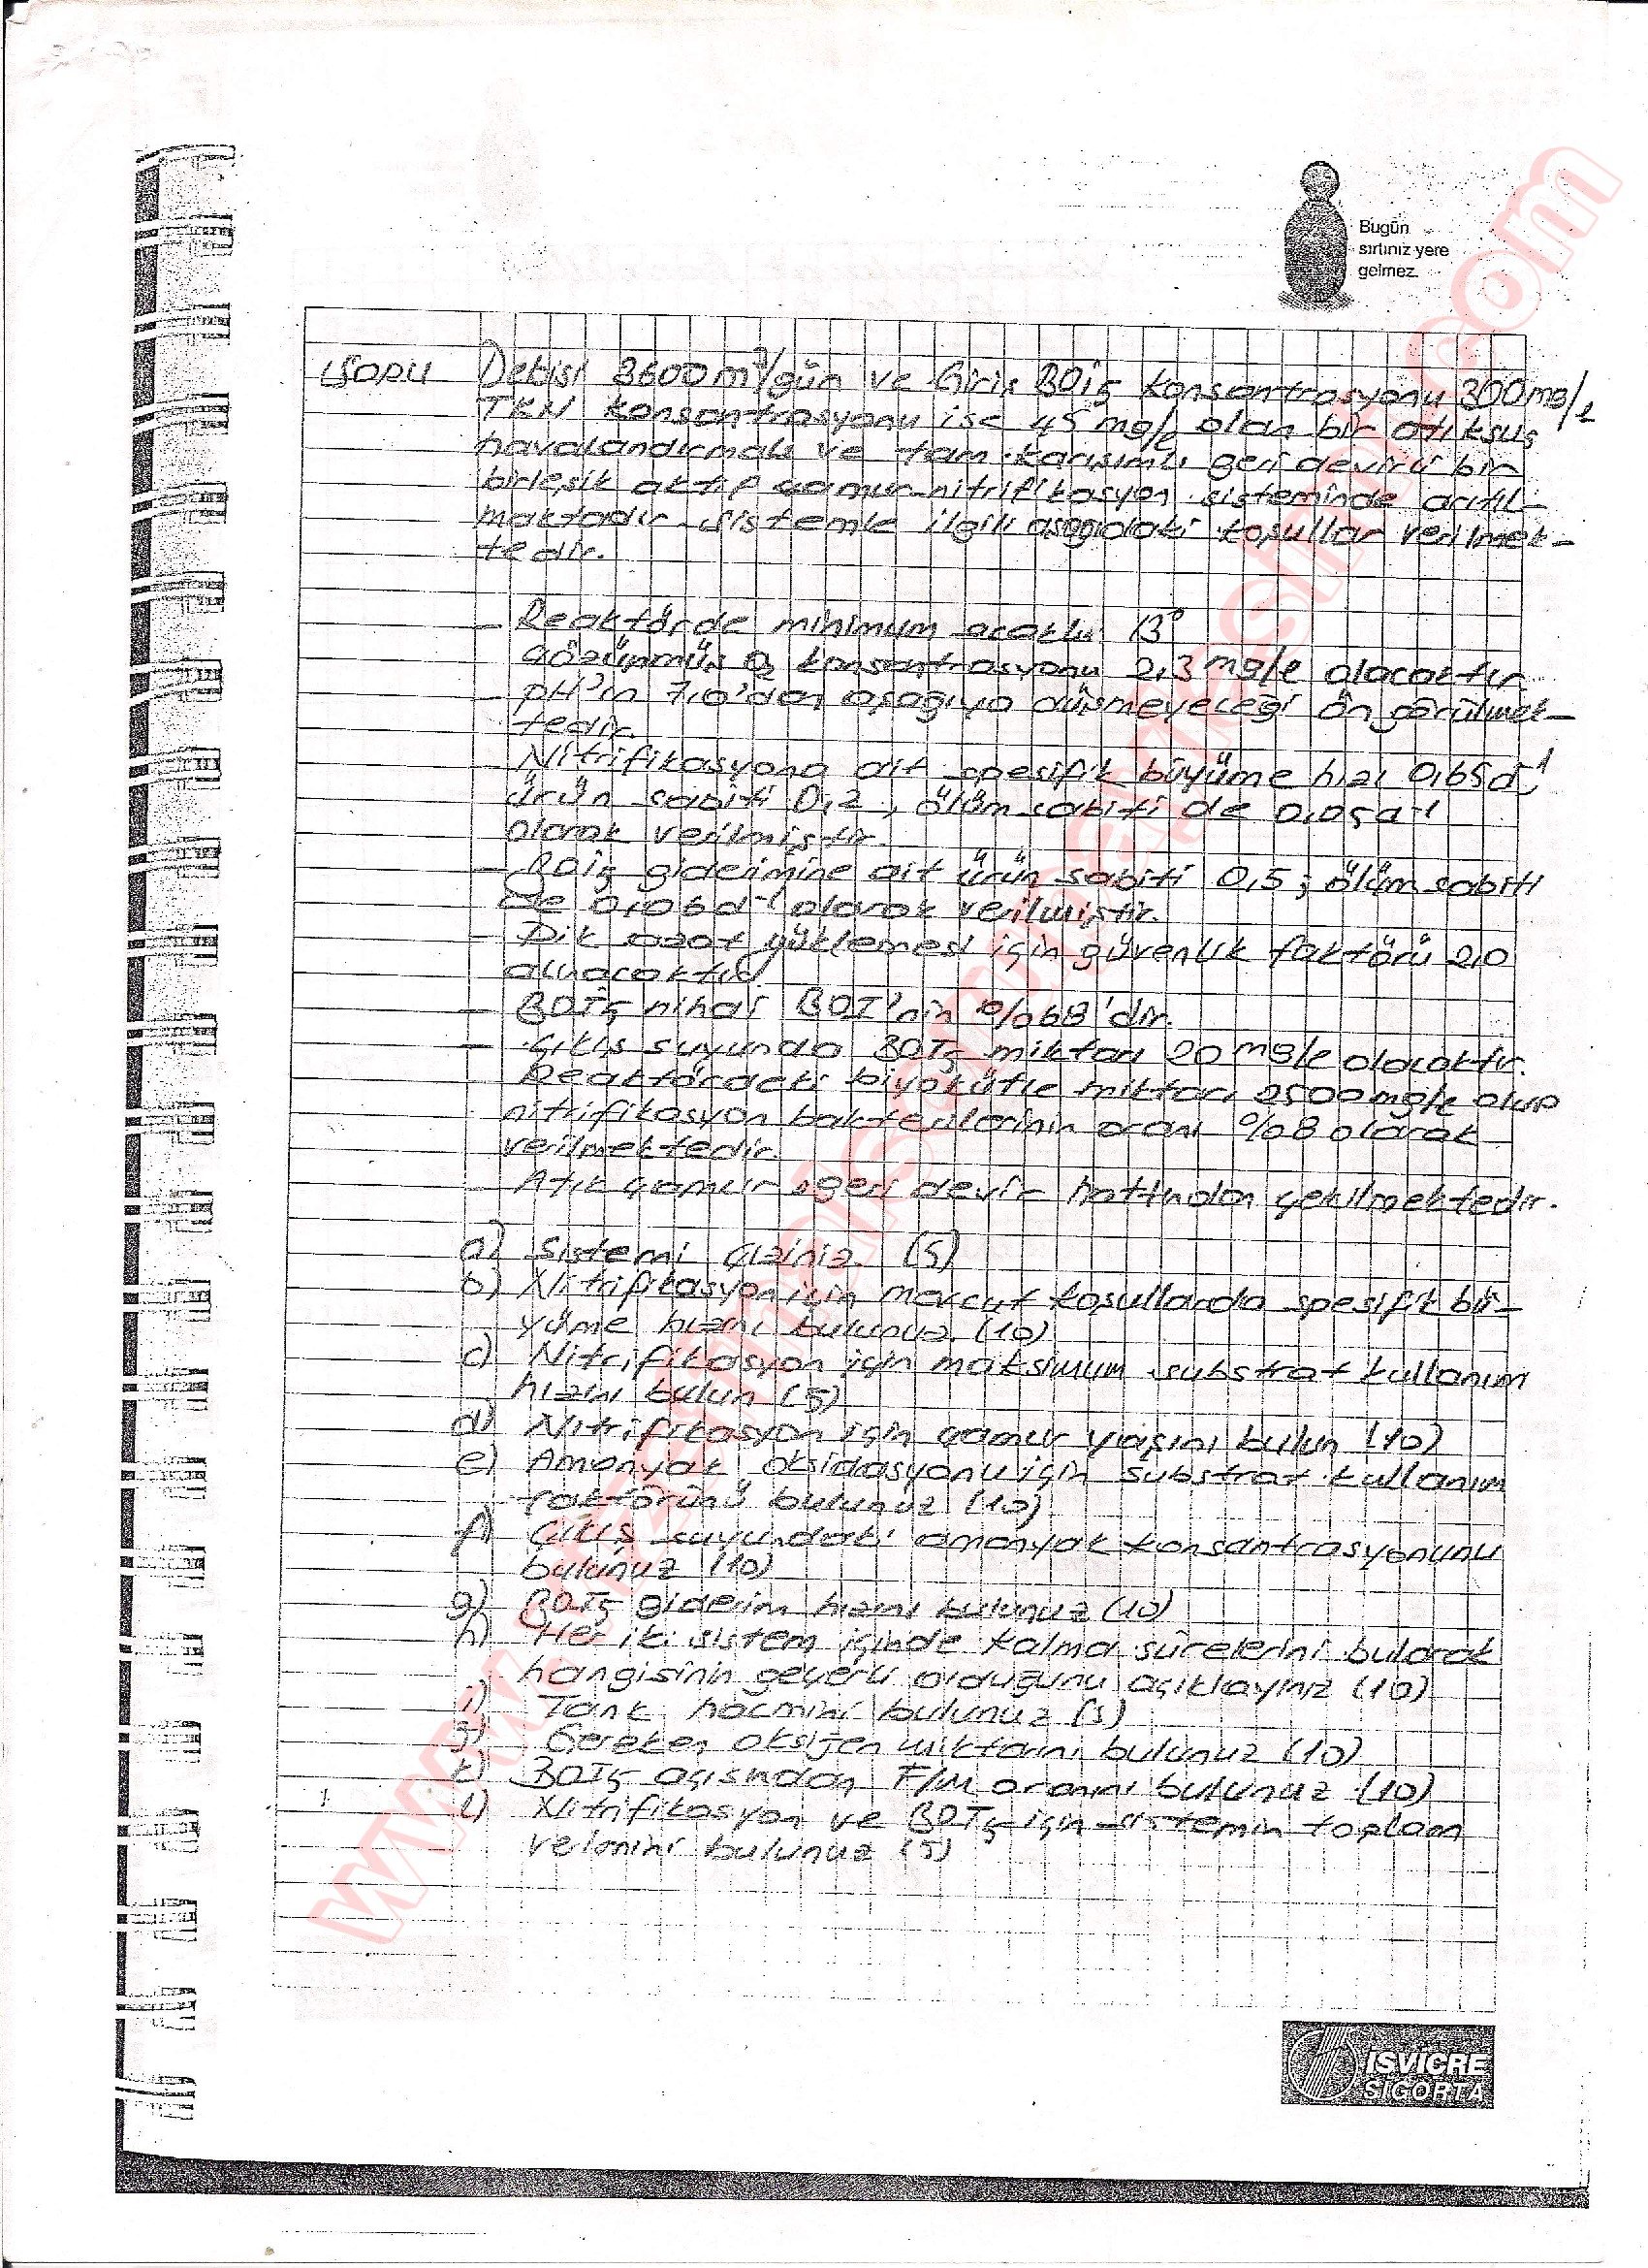 Bugün
sırtınız yere
gelmez.
1.SORU Debisi 3600 m³/gün ve Giriş BOİ5 konsantrasyonu 300 mg/l
TKN konsantrasyonu ise 45 mg/l olan bir atıksu,
havalandırmalı ve tam karışımlı geri devirli bir
birleşik aktif çamur-nitrifikasyon sisteminde arıtıl-
maktadır. Sistemle ilgili aşağıdaki koşullar verilmek-
tedir.
- Reaktörde minimum sıcaklık 13°
çözünmüş O2 konsantrasyonu 2,3 mg/l olacaktır.
- pH'ın 7,0'dan aşağıya düşmeyeceği öngörülmek-
tedir.
- Nitrifikasyona ait spesifik büyüme hızı 0,65 d-1,
ürün sabiti 0,2, ölüm sabiti de 0,05 d-1
olarak verilmiştir.
- BOİ5 giderimine ait ürün sabiti 0,5; ölüm sabiti
de 0,06 d-1 olarak verilmiştir.
- Pik azot yüklemesi için güvenlik faktörü 2,0
alınacaktır.
- BOİ5 nihai BOİ'nin %68'dir.
- Çıkış suyunda BOİ5 miktarı 20 mg/l olacaktır.
- Reaktördeki biyokütle miktarı 2500 mg/l olup
nitrifikasyon bakterilerinin oranı %8 olarak
verilmektedir.
- Atık çamur geri devir hattından çekilmektedir.
a) Sistemi çiziniz. (5)
b) Nitrifikasyon için mevcut koşullarda spesifik bü-
yüme hızını bulunuz. (10)
c) Nitrifikasyon için maksimum substrat kullanım
hızını bulun (5)
d) Nitrifikasyon için çamur yaşını bulun (10)
e) Amonyak oksidasyonu için substrat kullanım
faktörünü bulunuz (10)
f) Çıkış suyundaki amonyak konsantrasyonunu
bulunuz (10)
g) BOİ5 giderim hızını bulunuz (10)
h) Her iki sistem içinde kalma sürelerini bularak
hangisinin geçerli olduğunu açıklayınız (10)
i) Tank hacmini bulunuz (5)
j) Gereken oksijen miktarını bulunuz (10)
k) BOİ5 açısından F/M oranını bulunuz (10)
l) Nitrifikasyon ve BOİ5 için sistemin toplam
verimini bulunuz (5)
İSVİÇRE
SİGORTA